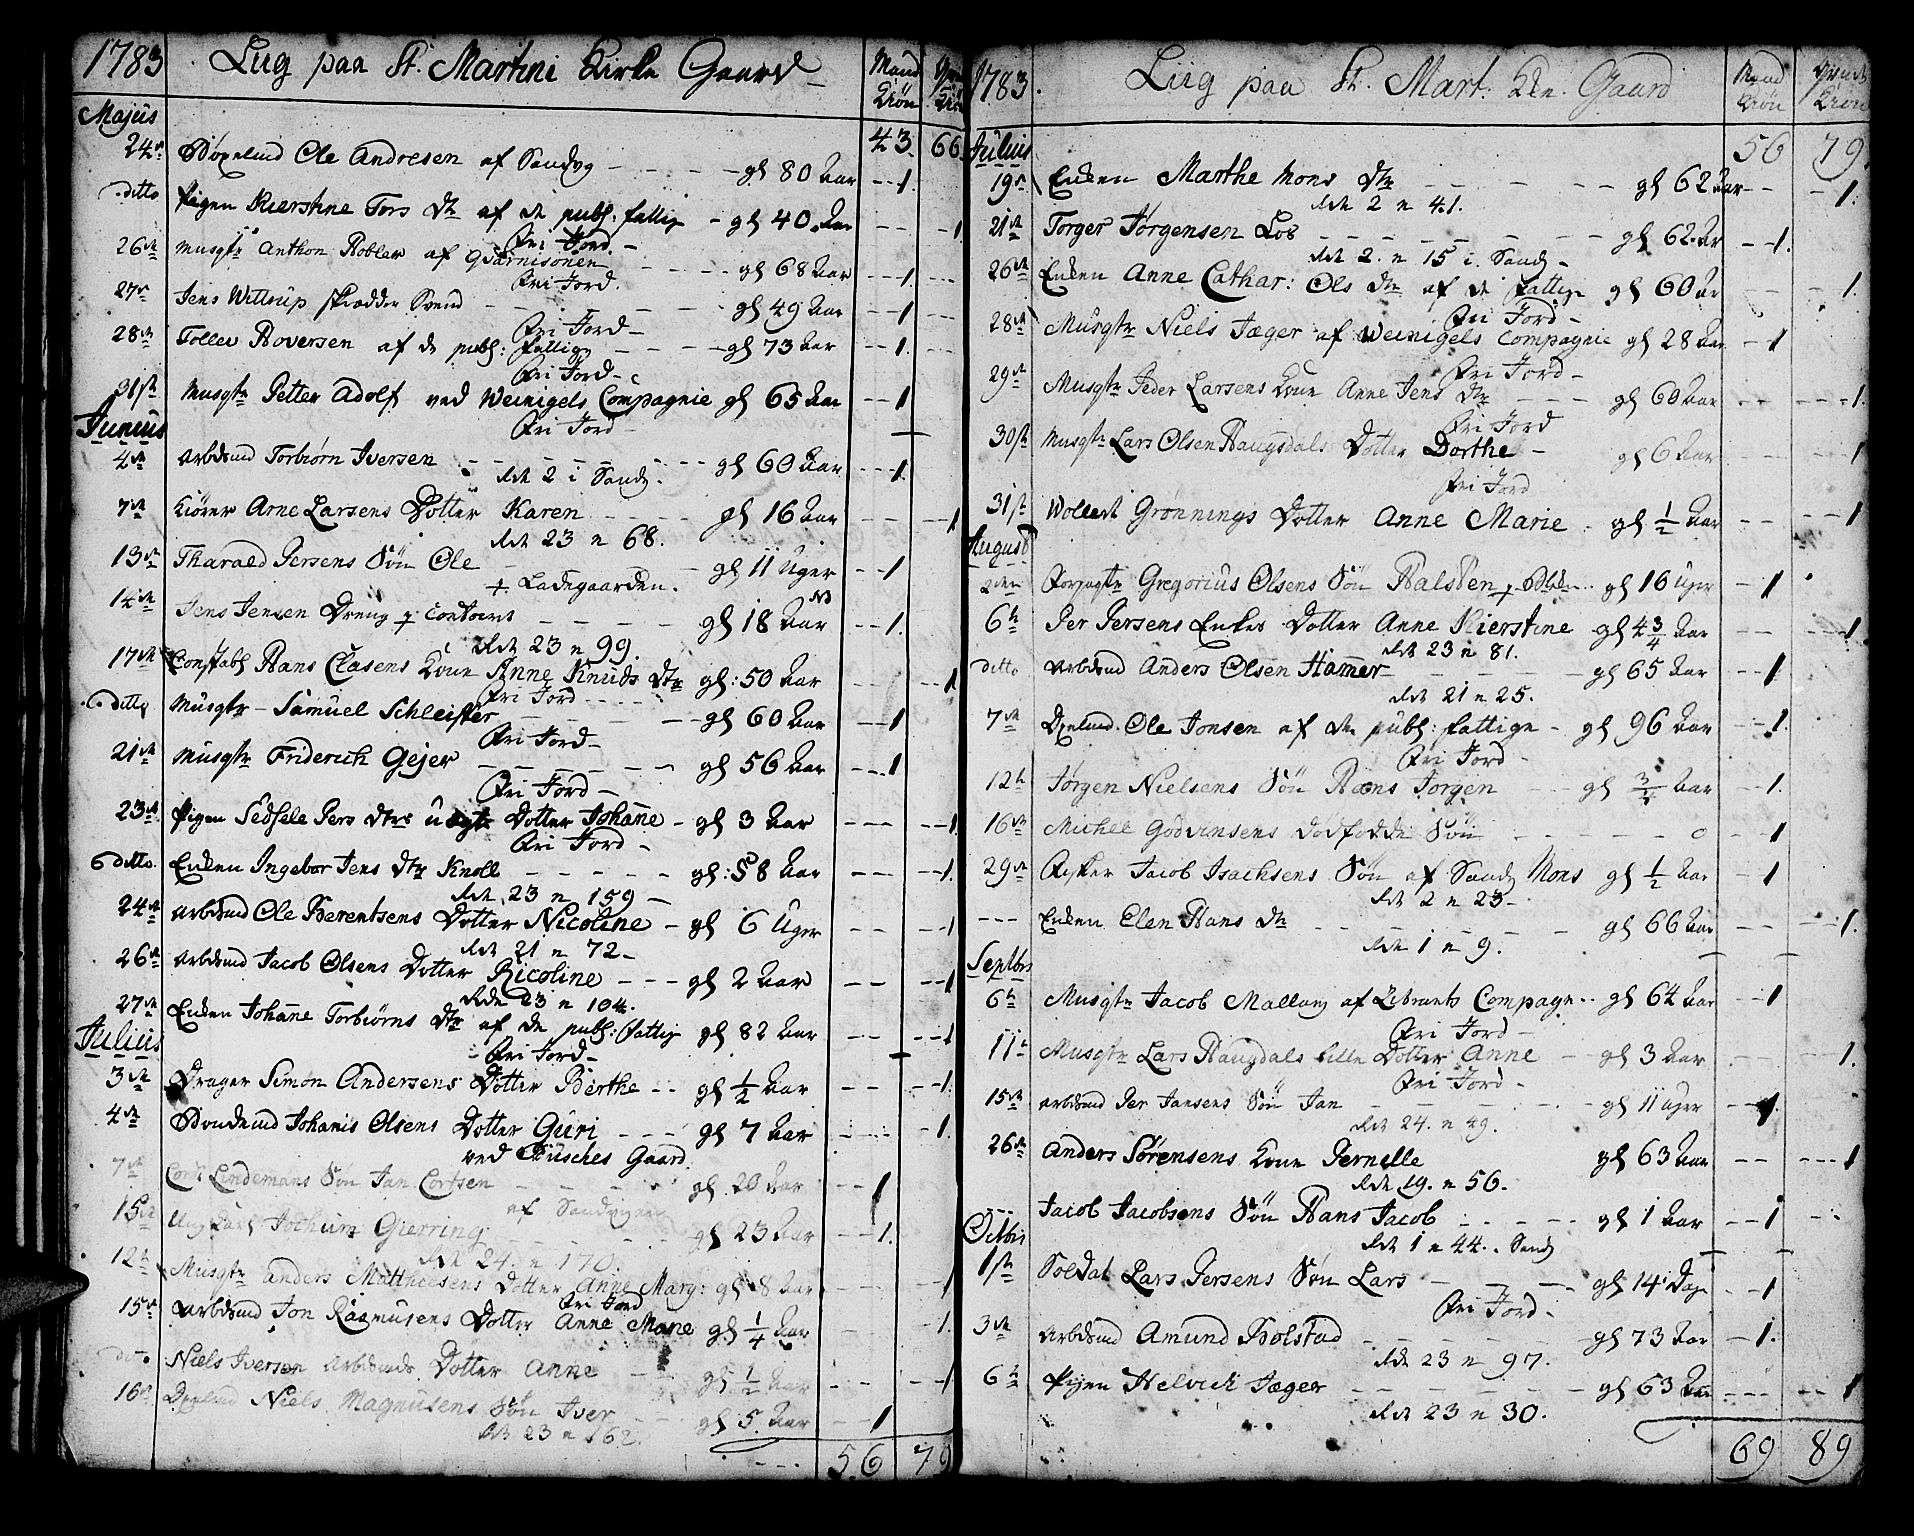 1783 Liig paa St. Martini Kirke Gaard Mand Kiøn Qvin Kiø
Majus 43 66
24de Ole Andresen af Sandvig gl 80 Aar 1
ditto Pigen Kierstine Tors Dtr af de publ: fattig gl 40 Aar 1
Fri Jord
26de Musqtr Anthon Robler af Guarnisonen gl 68 Aar 1
Fri Jord
27de Jens Wittrup Skrædder Svend gl 49 Aar 1
Fri Jord
28de Tollev Roversen af de publ: fattige gl 73 Aar 1
Fri Jord
31ste Musqtr Petter Adolf ved Weinigels Compagnie gl 65 Aar 1
Fri Jord
Junius
4de Arbdsmd Torbiørn Iversen gl 60 Aar 1
Rde 2 i Sandv
7de Kiører Arne Larsens Dotter Karen gl 16 Aar 1
Rde 23 n 68.
13de Tharald Persens Søn Ole gl 11 Uger 1
+ Ladegaarden.
14de Jens Jensen Dreng + Contoret gl 18 Aar 1
Rde 23 n 99.
17de Constabl Hans Clasens Kone Anne Knuds Dtr gl: 50 Aar 1
Fri Jord
ditto Musqtr Samuel Schleister gl 60 Aar 1
Fri Jord
21de Musqtr Friderich Gejer gl 56 Aar 1
Fri Jord
23de Pigen Sedsele Pers Dtrs uægte Dotter Johane gl 3 Aar 1
Fri Jord
ditto Enken Ingebor Jens Dtr Knoll gl: 58 Aar 1
Rde 23 n 159
24de Arbdsmd Ole Berentsens Dotter Nicoline gl 6 Uger 1
Rde 21 n 72
26de Arbdsmd Jacob Olsens Dotter Ricoline gl 2 Aar 1
Rde 23 n 104.
27de Enken Johane Torbiørns Dtr af de publ: fattig gl 82 Aar 1
Fri Jord
Julius
3de Drager Simon Andersens Dotter Berthe gl 1/2 Aar 1
4de Bondemd Johanis Olsens Dotter Guri gl 7 Aar 1
ved Büsches Gaard
7de Cort Lindemans Søn Jan Cortsen gl. 20 Aar 1
af Sandvigen
15de Ung Karl Jochum Gierring gl 23 Aar 1.
Rde 24. n 170.
12te Musqtr Anders Matthiesens Dotter Anne Marg: gl 8 Aar 1
Fri Jord
15de Arbdsmd Jon Rasmusens Dotter Anne Marie gl 1/4 Aar 1.
Niels Iversen Arbdsmds Dotter Anne gl 1/2 Aar 1
16de Niels Magnusens Søn Iver gl 5 Aar 1
Rde 23 n 162.
56 79
1783. Liig paa St. Mart. Kke. Gaard Mand Kiøn Qvinde Kiøn
Julius 56 79.
19de Enken Marthe Mons Dtr gl 62 Aar 1.
Rde 2 n 41.
21de Torger Jørgensen Los gl 62 Aar 1.
Rde 2. n 15 i Sandv
26de Enken Anne Cathar: Ols Dtr af de fattige gl 60 Aar 1.
Fri Jord
28de Musqtr Niels Jæger af Weinigels Compagnie gl 28 Aar 1
Fri Jord
29de Musqtr Peder Larsens Kone Anne Jens Dtr gl 60 Aar 1.
Fri Jord
30ste Musqtr Lars Olsen Haugsdals Dotter Dorthe gl 6 Aar 1
Fri Jord
31ste Wollert Grønnings Dotter Anne Marie gl 1/2 Aar 1
August
2den Gregorius Olsens Søn Halsten gl 16 Uger 1
6te Per Persens Enkes Dotter Anne Kierstine gl 4 3/4 Aar 1
Rde 23 n 81.
ditto Arbdsmd Anders Olsen Hamer gl 65 Aar 1
Rde 21 n 25.
7de Ole Jonsen af de publ: fattige gl 96 Aar 1.
Fri Jord
12te Jørgen Nielsens Søn Hans Jørgen gl 3/4 Aar 1.
16de Michel Godvinsens dødfødde Søn 1
29de Fisker Jacob Isachsens Søn af Sandv Mons gl 1/2 Aar 1
Rde 2 n 23
Enken Elen Hans Dtr gl 66 Aar 1.
Rde 1 n 9.
Septbris
6te Musqtr Jacob Mallang af Zibrants Compagn. gl 64 Aar 1
Fri Jord
11te Musqtr Lars Haugdals lille Dotter Anne gl 3 Aar 1.
Fri Jord
15de Arbdsmd Per Jansens Søn Jan gl 11 Uger 1
Rde 24. n 49.
26de Anders Sørensens Kone Pernelle gl 63 Aar 1
Rde 19. n 56.
Jacob Jacobsens Søn Hans Jacob gl 1 Aar 1
Rde 1 n 44. Sandv
Octbris
1ste Soldat Lars Persens Søn Lars gl 14 Dage 1
Fri Jord
3de Arbdsmd Amund Bolstad gl 73 Aar 1.
Rde 23 n 97.
6te Pigen Helvich Jæger gl 63 Aar 1
Rde 23 n 30.
69 89